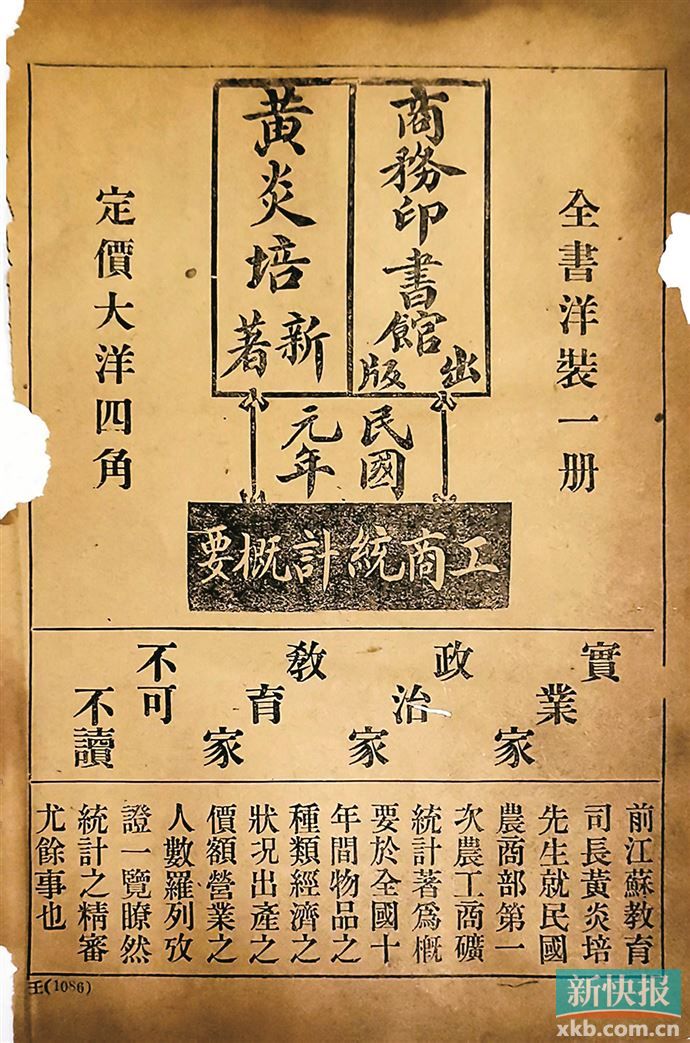 全書洋装一册
商務印書館出版
黃炎培新著
民國
元年
工商統計概要
定價大洋四角
實業家
政治家
教育家
不可不讀
前江蘇教育
司長黃炎培
先生就民國
農商部第一
次農工商礦
統計著爲概
要於全國十
年間物品之
種類經濟之
狀况出產之
價額營業之
人數羅列攷
證一覽瞭然
統計之精審
尤餘事也
王(1086)
新快报
xkb.com.cn